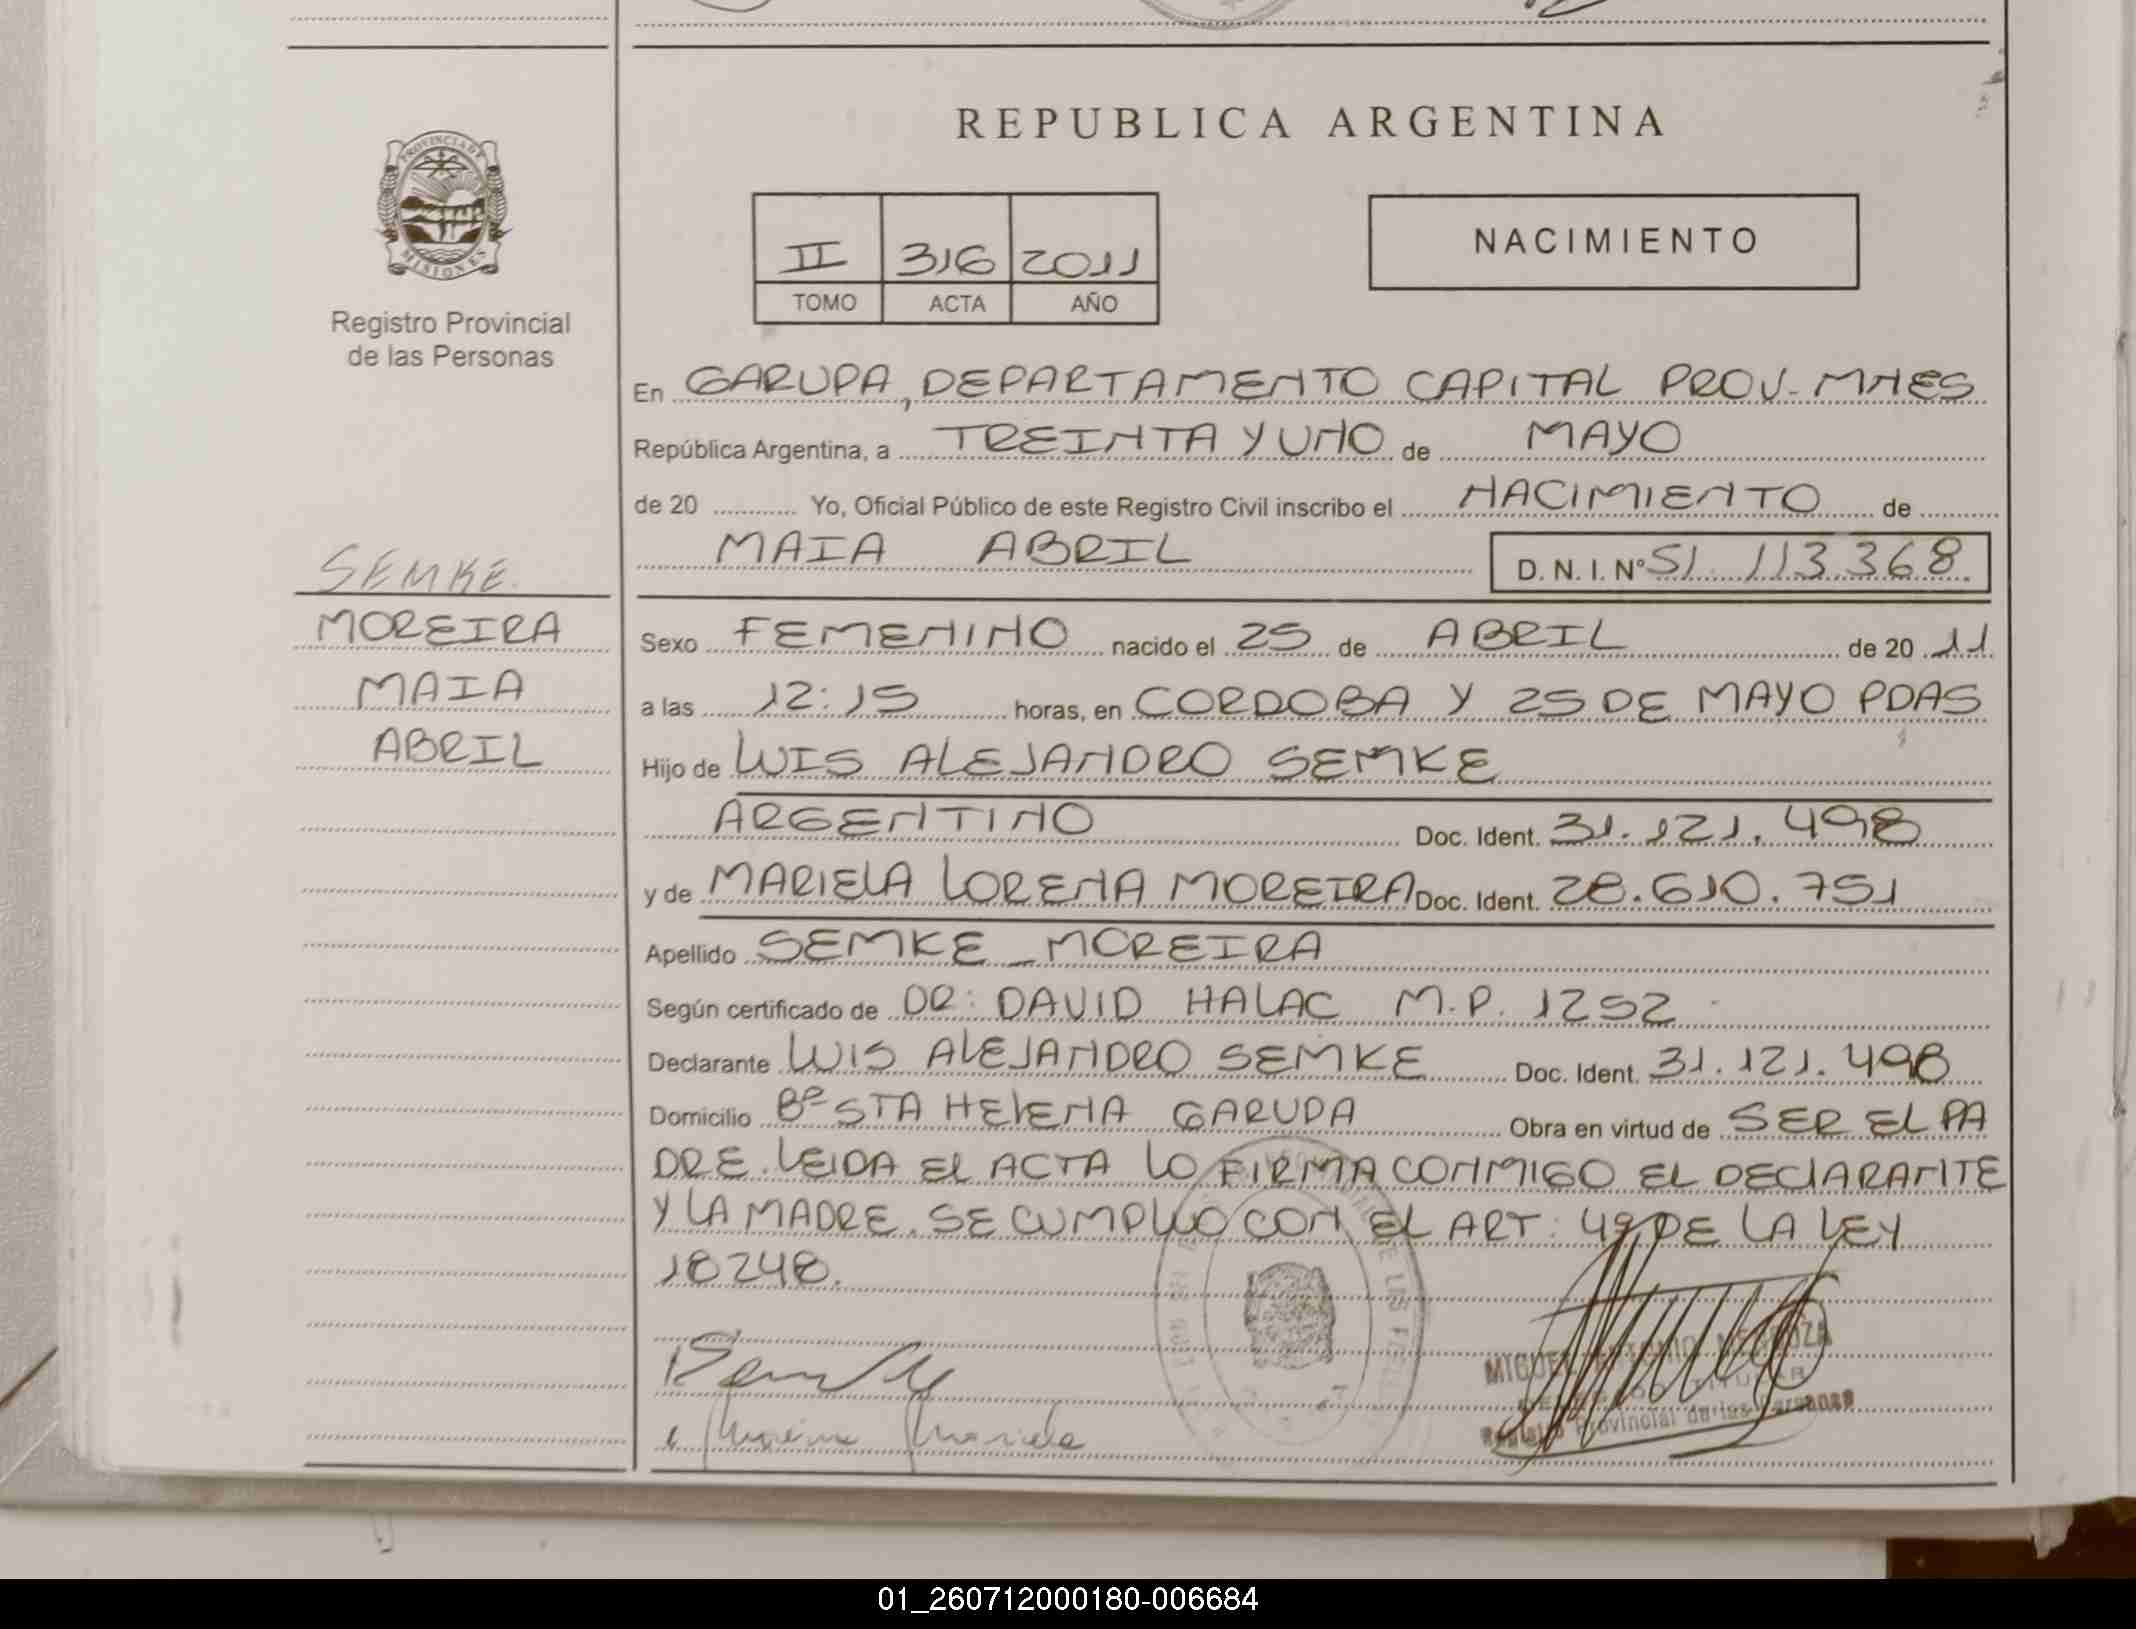 REPUBLICA ARGENTINA
PROVINCIA DE MISIONES
II 316 2011
TOMO ACTA AÑO
NACIMIENTO
Registro Provincial
de las Personas
SEMKE
MOREIRA
MAIA
ABRIL
En GARUPA, DEPARTAMENTO CAPITAL PROV. MNES
República Argentina, a TREINTA Y UNO de MAYO
de 20 Yo, Oficial Público de este Registro Civil inscribo el NACIMIENTO de
MAIA ABRIL D. N. I. Nº 51.113.368
Sexo FEMENINO nacido el 25 de ABRIL de 20 11
a las 12:15 horas, en CORDOBA Y 25 DE MAYO PDAS
Hijo de LUIS ALEJANDRO SEMKE
ARGENTINO Doc. Ident. 31.121.498
y de MARIELA LORENA MOREIRA Doc. Ident. 28.610.751
Apellido SEMKE - MOREIRA
Según certificado de DR: DAVID HALAC M.P. 1252
Declarante LUIS ALEJANDRO SEMKE Doc. Ident. 31.121.498
Domicilio Bº STA HELENA GARUPA Obra en virtud de SER EL PA
DRE. LEIDA EL ACTA LO FIRMA CONMIGO EL DECLARANTE
Y LA MADRE. SE CUMPLIO CON EL ART: 4º DE LA LEY
18248.
Moreira Mariela
MIGUEL ANTONIO MENDOZA
TITULAR
Registro Provincial de las Personas
01_260712000180-006684